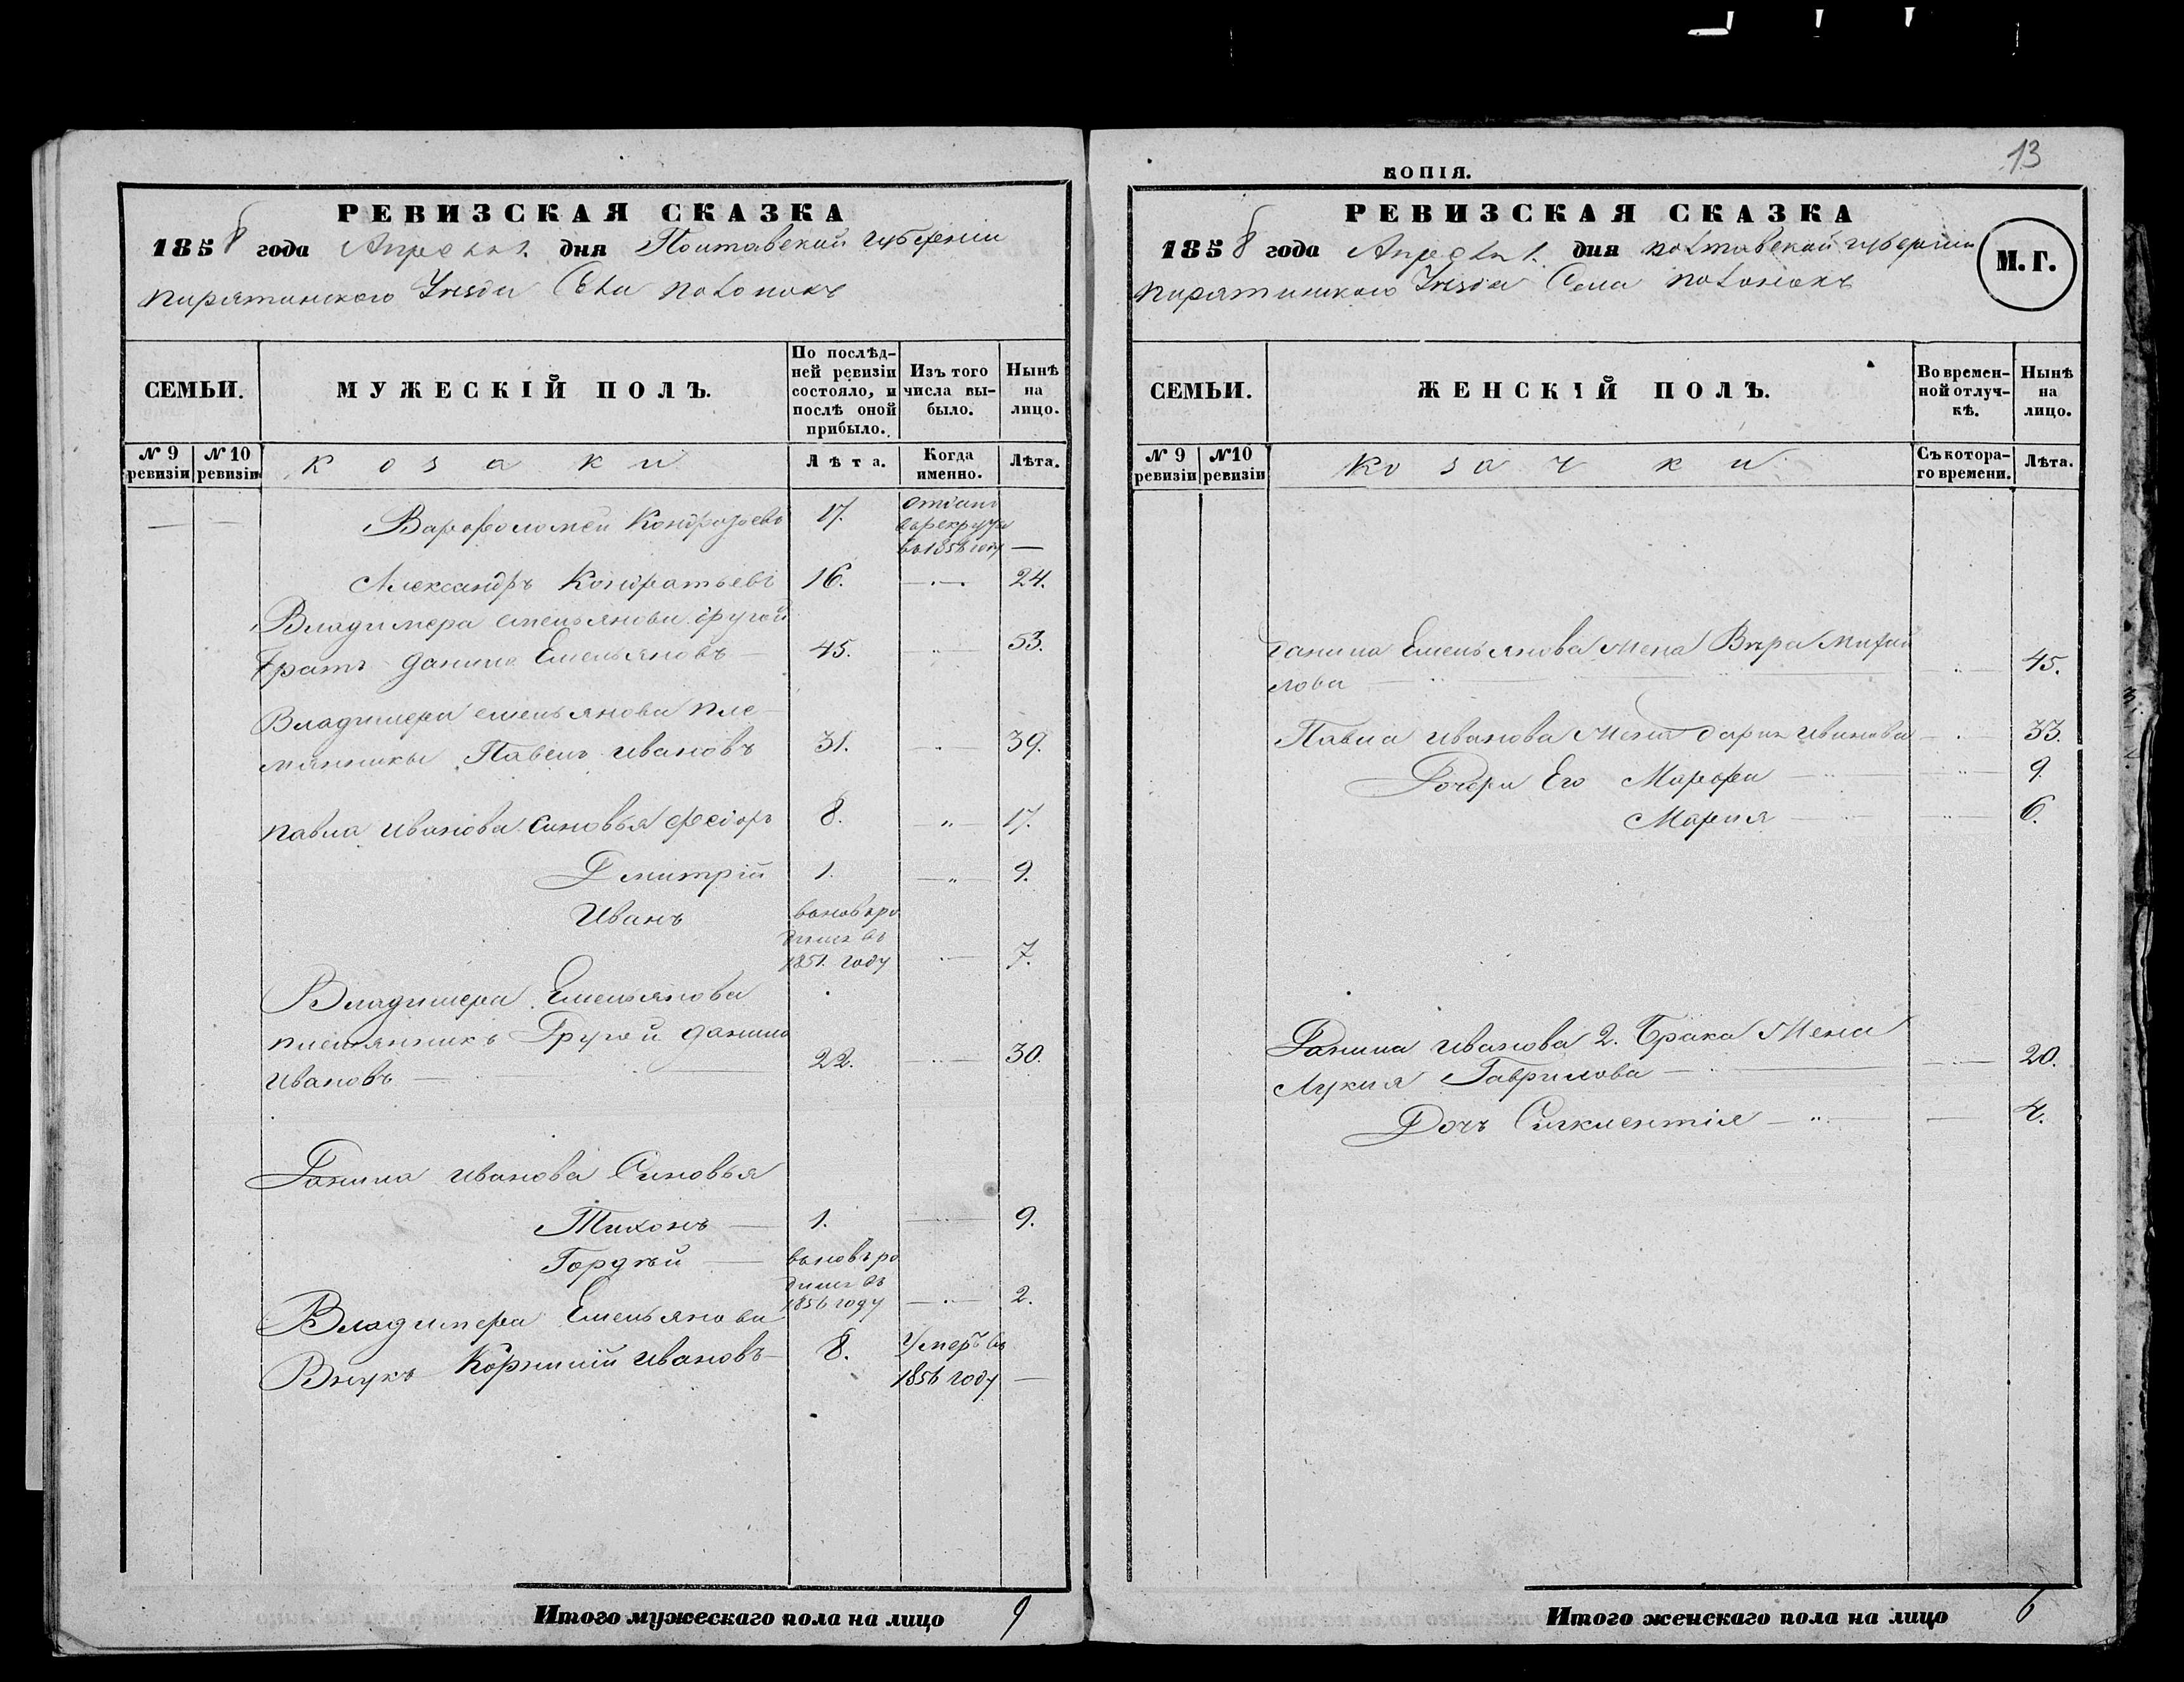 РЕВИЗСКАЯ СКАЗКА
1858 года Апреля 1. дня Полтавской губернии
Пирятинского Уезда Села Полонокъ
СЕМЬИ.
МУЖЕСКІЙ ПОЛЪ.
По послѣд-
ней ревизіи
состояло, и
послѣ оной
прибыло.
Изъ того
числа вы-
было.
Нынѣ
на
лицо.
№ 9
ревизіи
№ 10
ревизіи
козаки
Лѣта.
Когда
именно.
Лѣта.
Варфоломей Кондратьевъ 17. отданъ
въ рекруты
въ 1856 году —
Александръ Кондратьевъ 16. 24.
Владимера Емельянова другой
братъ Данило Емельяновъ 45. 53.
Владимера Емельянова пле-
мянники Павелъ Ивановъ 31. 39.
Павла Иванова Синовья Федоръ 8. 17.
Дмитрій 1. 9.
Иванъ вновь ро
дился въ
1851. году 7.
Владимера Емельянова
племянникъ Другой Данило
Ивановъ 22. 30.
Данила Иванова Синовья
Тихонъ 1. 9.
Гордѣй вновь ро
дился въ
1856 году 2.
Владимера Емельянова
Внукъ Корнилій Ивановъ 8. Умеръ въ
1856 году —
Итого мужескаго пола на лицо 9
13
КОПІЯ.
РЕВИЗСКАЯ СКАЗКА
1858 года Апреля 1. дня Полтавской губернии
М. Г.
Пирятинского Уезда Села Полонокъ
СЕМЬИ.
ЖЕНСКІЙ ПОЛЪ.
Во времен-
ной отлуч-
кѣ.
Нынѣ
на
лицо.
№ 9
ревизіи
№10
ревизіи
козачки
Съ котора-
го времени.
Лѣта.
Данила Емельянова Жена Вѣра Михай
лова 45.
Павла Иванова Жена Дарья Иванова 33.
Дочери Его Марфа 9.
Мария 6.
Данила Иванова 2. Брака Жена
Лукия Гаврилова 20.
Дочь 4.
Итого женскаго пола на лицо 6